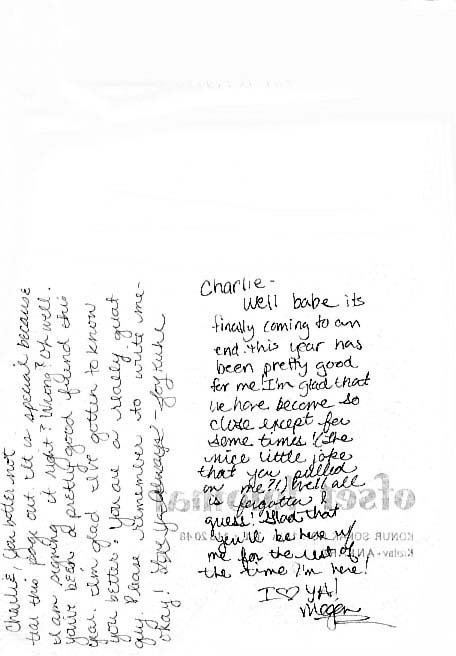 Charlie, You better not
tear this page out. It is special because
I am signing it right? Wrong? Oh well.
You've been a pretty good friend this
year. I'm glad I've gotten to know
you better. You are a really great
guy. Please remember to write me-
okay! Love Ya Always -Joy
Charlie-
Well babe its
finally coming to an
end. this year has
been pretty good
for me. I'm glad that
we have become so
close except for
some times! (the
nice little joke
that you pulled
on me?!) Well all
is forgotten I
guess! Glad that
you'll be here w/
me for the rest of
the time I'm here!
I ♡ YA!
Megan